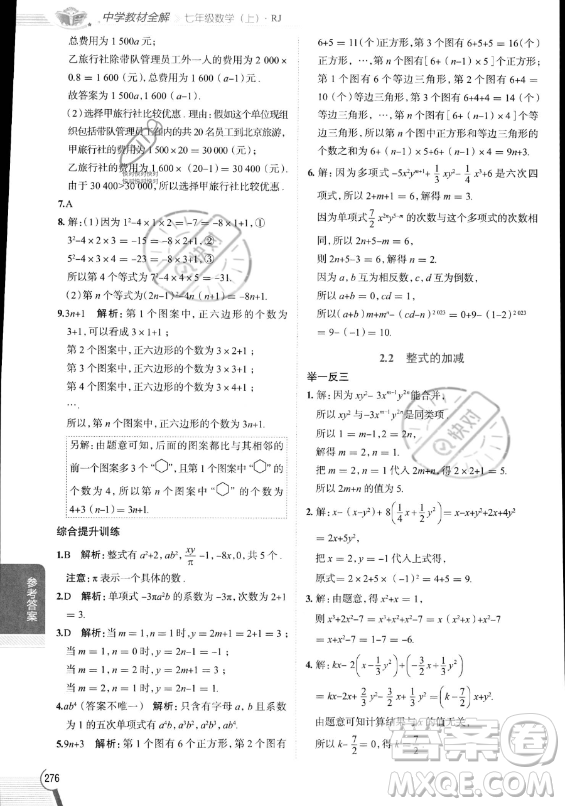 中学教材全解 七年级数学(上)·RJ
总费用为 1 500a,
乙旅行社除带队管理员工外一人的费用为 2 000×
0.8 = 1 600,总费用为 1 600(a-1).
故答案为 1 500a,1 600(a-1).
(2)选择甲旅行社比较优惠. 理由:假如这个单位
组织包括带队管理员工的共 20 名员工到北京旅游,
甲旅行社的费用为 1 500×20 = 30 000,
乙旅行社的费用为 1 600×(20-1) = 30 400,
由于 30 400>30 000,所以选择甲旅行社比较优惠.
7.A
8.解:(1)因为 1²-4×1×2 = -7 = -8×1+1,①
3²-4×2×3 = -15 = -8×2+1,②
5²-4×3×4 = -23 = -8×3+1,③
所以第 4 个等式为 7²-4×4×5 = -31.
(2)第 n 个等式为(2n-1)²-4n(n+1) = -8n+1.
9.3n+1 解析:第 1 个图案中,正六边形的个数为
3+1,可以看成 3×1+1;
第 2 个图案中,正六边形的个数为 3×2+1;
第 3 个图案中,正六边形的个数为 3×3+1;
第 4 个图案中,正六边形的个数为 3×4+1;
…
所以,第 n 个图案中,正六边形的个数为 3n+1.
另解:由题意可知,后面的图案都比与其相邻的
前一个图案多 3 个“⬡”,第 1 个图案中“⬡”的个
数为 4,所以第 n 个图案中“⬡”的个数为
4+3(n-1) = 3n+1.
综合提升训练
1.B 解析:整式有 a²+2,ab²,xy/π-1,-8x,0,共 5 个.
注意:π 表示一个具体的数.
2.D 解析:单项式 -3πa²b 的系数为 -3π,次数为 2+1
= 3.
3.D 解析:当 m=1,n=0 时,y = 2m+1 = 3;
当 m=1,n=2 时,y = 2n-1 = 3.
4.ab⁴(答案不唯一) 解析:只含有字母 a,b,系数
为 1 的五次单项式有 a⁴b,a³b²,a²b³,ab⁴.
5.9n+3 解析:第 1 个图有 6 个正方形,第 2 个图有
6+5 = 11(个)正方形,第 3 个图有 11+5 =
16(个)正方形,第 n 个图有(5n+1)个正方形;
第 1 个图有 6 个等边三角形,第 2 个图有 6+4 =
10(个)等边三角形,第 3 个图有 6+4+4 =
14(个)等边三角形,第 n 个图有(4n+2)个等
边三角形,所以第 n 个图中正方形和等边三角形的
个数之和为 6+(n-1)×5+6+(n-1)×4 = 9n+3.
6.解:因为多项式 -5x²yᵐ⁺¹+1/3 xy²-1/4 x³+6 是六次四
项式,所以 2+m+1 = 6,所以 m = 3.
因为单项式 7/2 x²ⁿy⁵⁻ᵐ 的次数与这个多项式的次数相同,
所以 2n+5-m = 6,
所以 2n = 1+3 = 4,所以 n = 2.
因为 a,b 互为相反数,c,d 互为倒数,
所以 a+b = 0,cd = 1,
所以(a+b)m+mⁿ-(cd-n)²⁰²³ = 0+9-(1-2)²⁰²³
= 0+9-(-1) = 10.
2.2 整式的加减
举一反三
1.解:因为 xy²-3xᵐ⁻¹y²ⁿ 能合并,
所以 xy² 与 -3xᵐ⁻¹y²ⁿ 是同类项,
所以 m-1 = 1,2n = 2,
解得 m = 2,n = 1.
把 m = 2,n = 1 代入 m²+n = 4+1 = 5,
所以 m²+n 的值为 5.
2.解:x-(x-y²)+8(1/4 x+1/2 y²) = x-x+y²+2x+4y²
= 2x+5y².
把 x = -2,y = -1 代入,得
原式 = 2×(-2)+5×(-1)² = 1.
3.解:由题意,得
x³+2x²-7-2x²+9 = x³+x²+x²-7-2x²+9 = x³+2.
4.解:kx-2(x-1/3 y²)+(-3/2 x+1/3 y²) =
kx-2x+2/3 y²-3/2 x+1/3 y² = (k-7/2)x+y².
由题意可知计算结果与 x 的值无关,
所以 k-7/2 = 0,解得 k = 7/2
参考答案
276